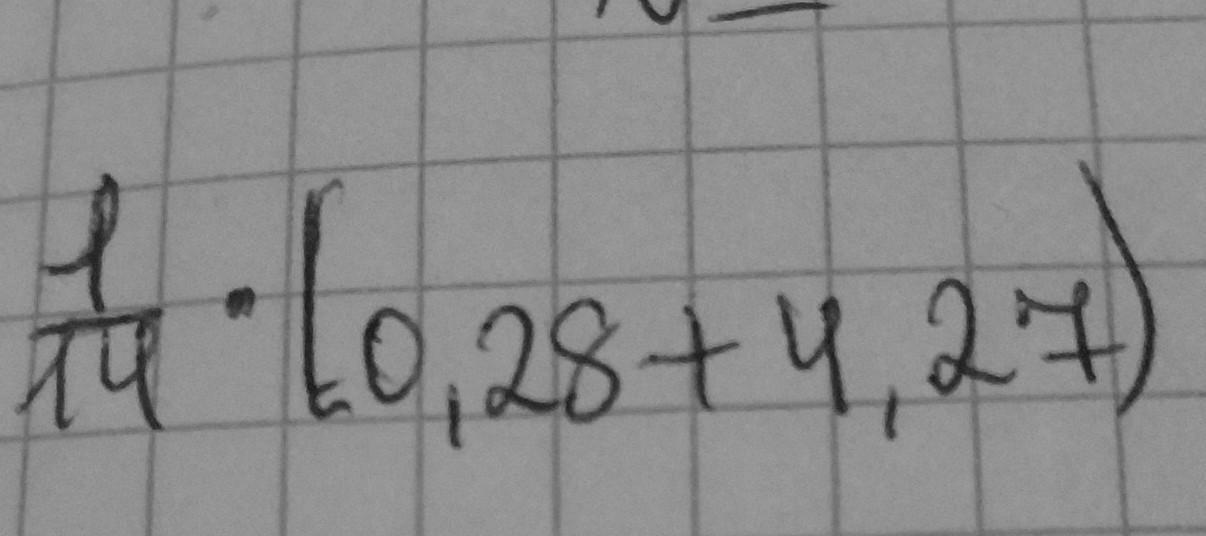 1/14 · [0,28+4,27)